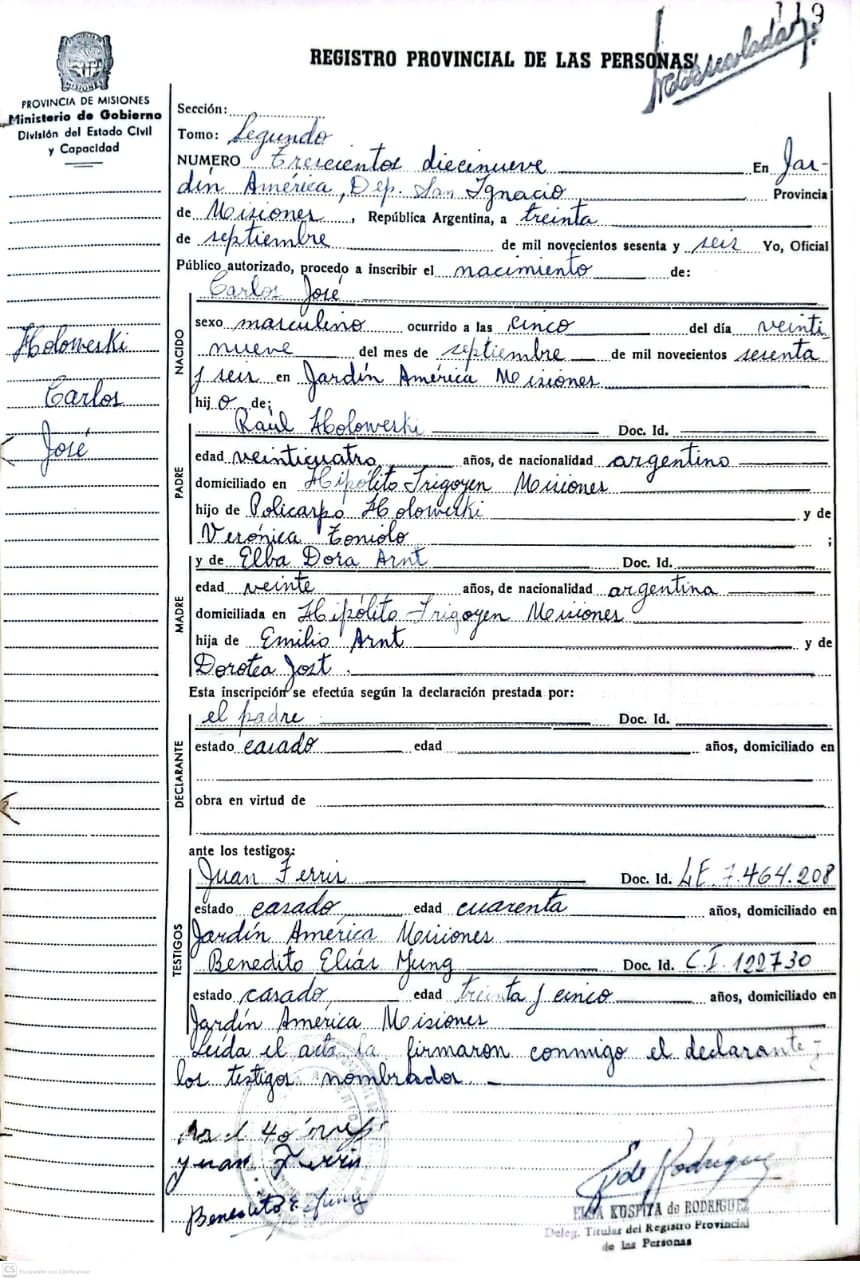 119
REGISTRO PROVINCIAL DE LAS PERSONAS
PROVINCIA DE MISIONES
Ministerio de Gobierno
División del Estado Civil
y Capacidad
Sección:
Tomo: Segundo
NUMERO Trescientos diecinueve En Jar-
dín América, Dep. San Ignacio Provincia
de Misiones, República Argentina, a treinta
de septiembre de mil novecientos sesenta y seis Yo, Oficial
Público autorizado, procedo a inscribir el nacimiento de:
Holoweski
Carlos
José
NACIDO
Carlos José
sexo masculino ocurrido a las cinco del día veinti
nueve del mes de septiembre de mil novecientos sesenta
y seis en Jardín América Misiones
hijo de:
PADRE
Raúl Holoweski Doc. Id.
edad veinticuatro años, de nacionalidad argentino
domiciliado en Hipólito Irigoyen Misiones
hijo de Policarpo Holoweski y de
Verónica Toniolo ;
MADRE
y de Elba Dora Arnt Doc. Id.
edad veinte años, de nacionalidad argentina
domiciliada en Hipólito Irigoyen Misiones
hija de Emilio Arnt y de
Dorotea Jost.
Esta inscripción se efectúa según la declaración prestada por:
DECLARANTE
el padre Doc. Id.
estado casado edad años, domiciliado en
obra en virtud de
ante los testigos:
TESTIGOS
Juan Ferris Doc. Id. LE. 7.464.208
estado casado edad cuarenta años, domiciliado en
Jardín América Misiones
Benedito Elías Jung Doc. Id. C.I. 122730
estado casado edad treinta y cinco años, domiciliado en
Jardín América Misiones
Leída el acta la firmaron conmigo el declarante y
los testigos nombrados.
Juan Ferris
Benedito E. Jung
E. de Rodriguez
ELSA KUSPITA de RODRIGUEZ
Deleg. Titular del Registro Provincial
de las Personas
CS Escaneado con CamScanner